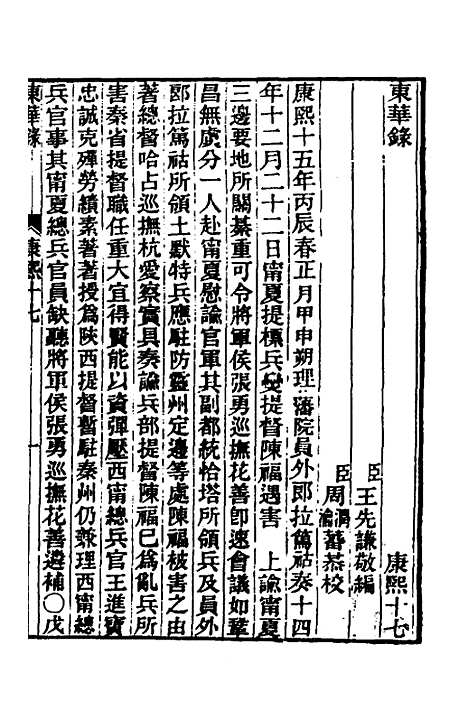 東華錄
康熙十七
臣王先謙敬編
臣周潤蕃周瀹蕃恭校
康熙十五年丙辰春正月甲申朔理藩院員外郎拉篤祜奏十四
年十二月二十二日甯夏提標兵變提督陳福遇害　上諭甯夏
三邊要地所關綦重可令將軍侯張勇巡撫花善卽速會議如鞏
昌無虞分一人赴甯夏慰諭官軍其副都統恰塔所領兵及員外
郎拉篤祜所領土默特兵應駐防靈州定邊等處陳福被害之由
著總督哈占巡撫杭愛察實具奏諭兵部提督陳福已爲亂兵所
害秦省提督職任重大宜得賢能以資彈壓西甯總兵官王進寶
忠誠克殫勞績素著著授爲陝西提督暫駐秦州仍兼理西甯總
兵官事其甯夏總兵官員缺聽將軍侯張勇巡撫花善遴補○戊
東華錄
康熙十七
一